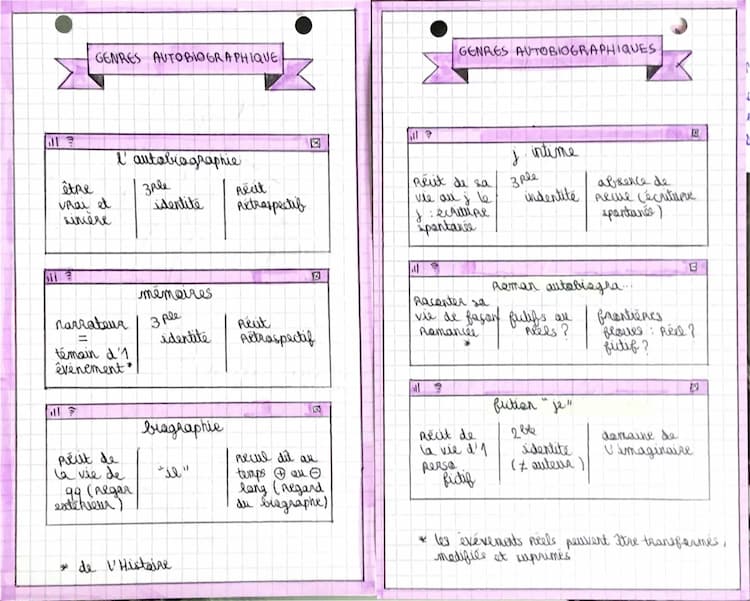 GENRES AUTOBIOGRAPHIQUE
l'autobiographie
être
vrai et
sincère
3ple
identité
récit
rétrospectif
mémoires
narrateur
=
témoin d'1
évènement*
3ple
identité
récit
rétrospectif
biographie
récit de
la vie de
qq (regar
extérieur)
"il"
recul dit au
temps ⊕ au ⊖
long (regard
du biographe)
* de l'Histoire
GENRES AUTOBIOGRAPHIQUES
j. intime
récit de sa
vie au j le
j : écriture
spontanée
3ple
indentité
absence de
recul (écriture
spontanée)
roman autobiogra...
raconter sa
vie de façon
romancée
*
fictifs au
réels ?
frontières
floues : réel ?
fictif ?
fiction "je"
récit de
la vie d'1
perso
fictif
2ble
identité
(≠ auteur)
domaine de
l'imaginaire
* les évènements réels peuvent être transformés,
modifiés et suprimés